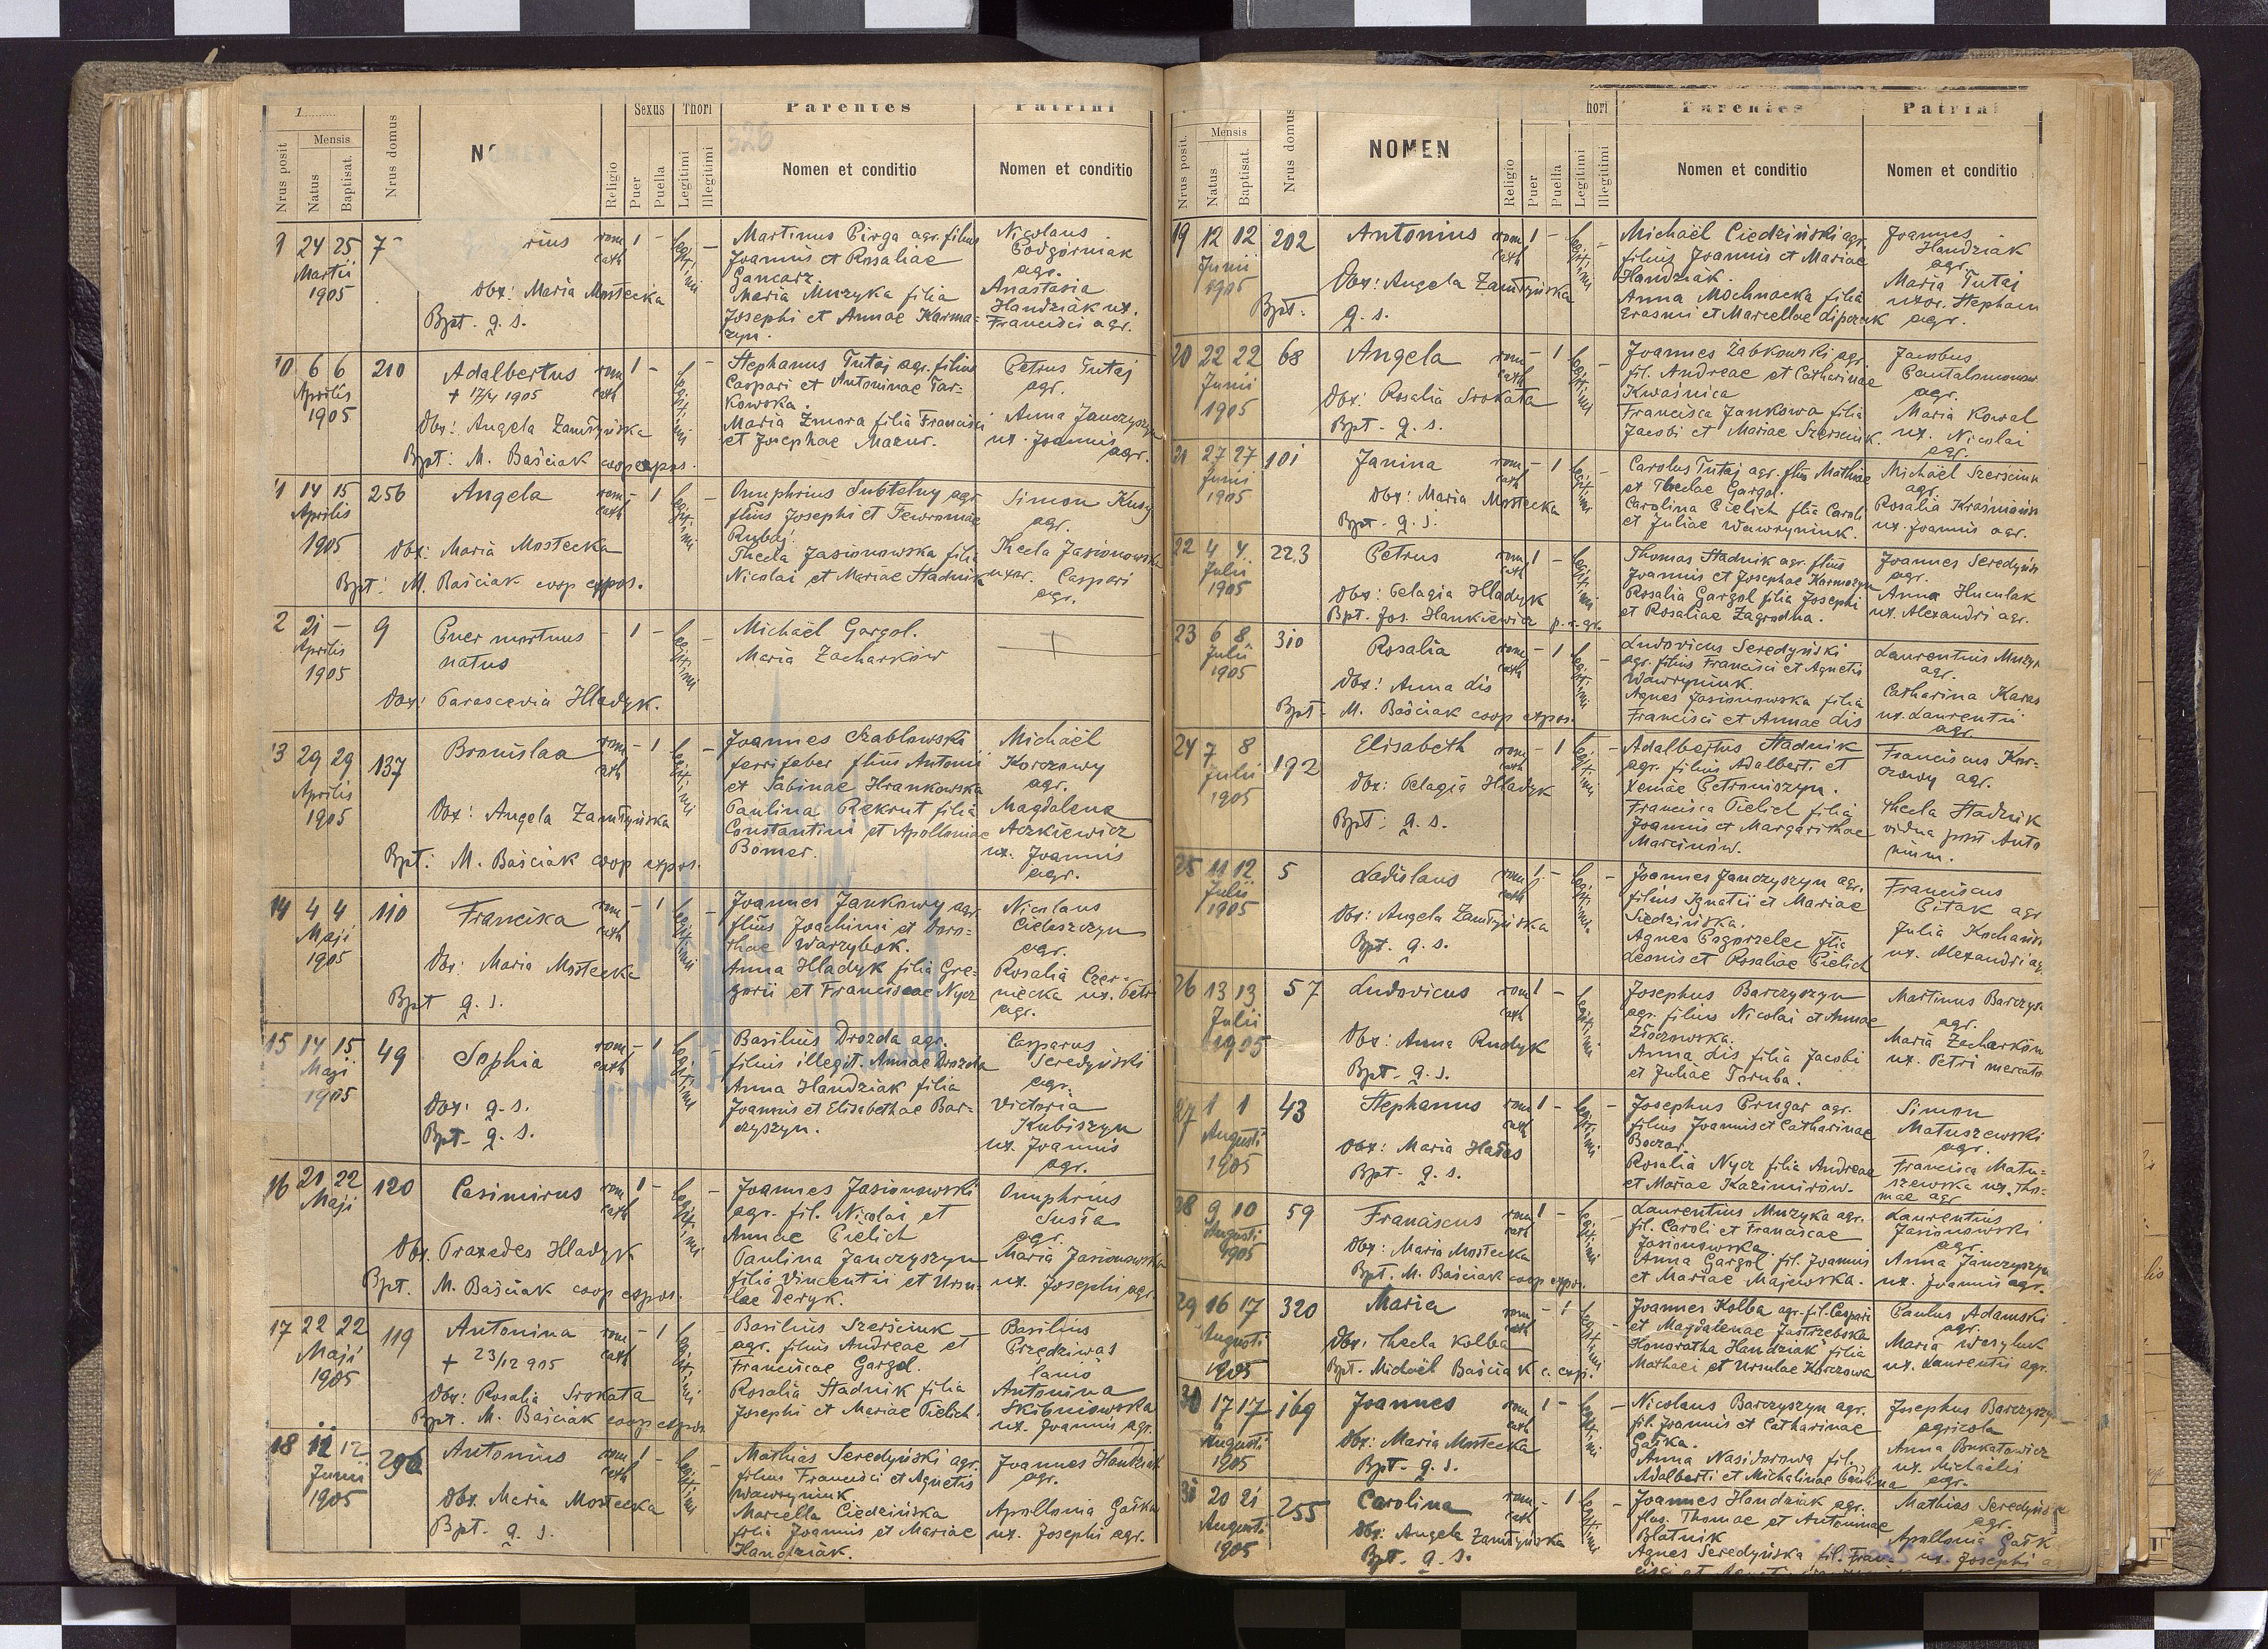 Nrus posit
Mensis
Natus
Baptisat.
Nrus domus
Religio
Sexus
Puer
Puella
Thori
Legitimi
Illegitimi
Parentes
326
Nomen et conditio
Patrini
Nomen et conditio
9 24 25 rius rom 1 - Martinus Pirga agr. filius Nicolaus
Martii cath Joannis et Rosaliae Podgórniak
1905 Gancarz. agr.
Obx: Maria Mostecka Maria Muzyka filia Anastasia
Bpt. q. s. Josephi et Annae Karma= Handziak ux.
zyn. Francisci agr.
10 6 6 210 Adalbertus rom 1 - Stephanus Tutaj agr. filius Petrus Tutaj
Aprilis + 17/4 1905 cath Caspari et Antoninae Tar- agr.
1905 kowska.
Obx: Angela Zamłyńska Maria Zmora filia Francisci Anna Janczyszyn
et Josephae Mazur. ux. Joannis
Bpt: M. Baściak coop expos. agr.
11 14 15 256 Angela rom - 1 Onuphrius Subtelny agr Simon Kusy
Aprilis cath filius Josephi et Fewroniae agr.
1905 Rubaj.
Obx: Maria Mostecka Thecla Jasionowska filia Thecla Jasionowska
Bpt: M. Baściak coop expos. Nicolai et Mariae Stadnik uxor. Caspari
agr.
2 21 - 9 Puer mortuus - 1 - Michaël Gargol.
Aprilis natus Maria Zacharków
1905
Obx: Parascevia Hladyk.
13 29 29 137 Bronislaa rom - 1 Joannes Szablowski Michaël
Aprilis cath ferrifaber filius Antonii Korczowy
1905 et Sabinae Hrankowska agr.
Obx: Angela Zamłyńska Paulina Rekrut filia Magdalena
Constantini et Apolloniae Aczkiewicz
Bpt: M. Baściak coop expos. Bomer. ux. Joannis
agr.
14 4 4 110 Franciska rom - 1 Joannes Jankowy agr Nicolaus
Maji cath filius Joachimi et Doro- Cieleszczyn
1905 thae Warzybok. agr.
Obx: Maria Mostecka Anna Hladyk filia Gre- Rosalia Czer-
Bpt q. s. gorii et Franciscae Nycz niecka ux. Petri
agr.
15 14 15 49 Sophia rom - 1 Basilius Drozda agr. Casparus
Maji cath filius illegit. Annae Drozda Seredyński
1905 Anna Handziak filia agr.
Obx: q. s. Joannis et Elisabethae Bar- Victoria
Bpt- q. s. czyszyn. Kubiszyn
ux. Joannis
agr.
16 21 22 120 Casimirus rom 1 - Joannes Jasionowski Onuphrius
Maji cath agr. fil. Nicolai et Susła
Annae Pielich agr.
Obx. Praxedes Hladyk Paulina Janczyszyn Maria Jasionowska
Bpt. M. Baściak coop expos. filia Vincentii et Ursu- ux. Josephi agr.
lae Deryk.
17 22 22 119 Antonina rom - 1 Basilius Szerściuk Basilius
Maji + 23/12 905 cath agr. filius Andreae et Przedziwas
1905 Franciscae Gargol. lanio
Obx: Rosalia Srokata Rosalia Stadnik filia Antonina
Bpt. M. Baściak coop expos Josephi et Mariae Pielich. Skibniowska
ux. Joannis agr.
18 12 12 296 Antonius rom 1 - Mathias Seredyński agr. Joannes Handziak
Junii cath filius Francisci et Agnetis agr.
1905 Wawryniuk.
Obx. Maria Mostecka Marcella Ciedzińska Apollonia Gaśka
Bpt. q. s. filia Joannis et Mariae ux. Josephi agr.
Handziak.
Nrus posit.
Mensis
Natus
Baptisat.
Nrus domus
NOMEN
Religio
Puer
Puella
hori
Legitimi
Illegitimi
Parentes
Nomen et conditio
Patrini
Nomen et conditio
19 12 12 202 Antonius rom 1 - Michaël Ciedziński agr. Joannes
Junii cath filius Joannis et Mariae Handziak
1905 Handziak. agr.
Obx: Angela Zamłyńska Anna Mochnacka filia Maria Tutaj
Bpt: q. s. Erasmi et Marcellae Lipczuk uxor. Stephani
agr.
20 22 22 68 Angela rom - 1 Joannes Żabkowski agr. Jacobus
Junii cath fil. Andreae et Catharinae
1905 Kwaśnica agr.
Obx: Rosalia Srokata Francisca Jankowa filia Maria Kowal
Bpt- q. s. Jacobi et Mariae Szerściuk. ux. Nicolai
agr.
21 27 27 101 Janina rom - 1 Carolus Tutaj agr. filius Mathiae Michaël Szerściuk
Junii cath et Theclae Gargol. agr.
1905 Obx: Maria Mostecka Carolina Pielich filia Caroli Rosalia
Bpt- q. s. et Juliae Wawryniuk. ux. Joannis agr.
22 4 4 223 Petrus rom 1 - Thomas Stadnik agr. filius Joannes Seredyńs
Julii cath Joannis et Josephae Karmazyn agr.
1905 Obx: Pelagia Hladyk Rosalia Gargol filia Josephi Anna Huculak
Bpt. Jos. Hankiewicz et Rosaliae Zagrodna. ux. Alexandri agr.
23 6 8 310 Rosalia rom - 1 Ludovicus Seredyński Laurentius Muzy
Julii cath agr. filius Francisci et Agnetis agr.
1905 Wawryniuk.
Obx: Anna Lis Agnes Jasionowska filia Catharina Karas
Bpt- M. Baściak coop expos. Francisci et Annae Lis ux. Laurentii
agr.
24 7 8 192 Elisabeth rom - 1 Adalbertus Stadnik Franciscus Kor-
Julii cath agr. filius Adalberti et czowy agr.
1905 Obx: Pelagia Hladyk Xeniae Petroniszyn.
Bpt: q. s. Francisca Pielich filia Thecla Stadnik
Joannis et Margarithae vidua post Anto
Marcinów. nium.
25 11 12 5 Ladislaus rom 1 - Joannes Janczyszyn agr. Franciscus
Julii cath filius Ignatii et Mariae Pitak agr
1905 Siedzińska.
Obx: Angela Zamłyńska Agnes Pogorzelec filia Julia Kochańs
Bpt. q. s. Leonis et Rosaliae Pielich ux. Alexandri ag.
26 13 13 57 Ludovicus rom 1 - Josephus Barczyszyn Martinus Barczys
Julii cath agr. filius Nicolai et Annae agr.
1905 Złoczowska.
Obx: Anna Rudyk Anna Lis filia Jacobi Maria Zacharków
Bpt- q. s. et Juliae Toruba. ux. Petri mercato
27 1 1 43 Stephanus rom 1 - Josephus Prugar agr. Simon
Augusti cath filius Joannis et Catharinae Matuszewski
1905 Boczar. agr.
Obx: Maria Hałas Rosalia Nycz filia Andreae Francisca Matu=
Bpt- q. s. et Mariae Kazimirów. szewska ux. Tho-
mae agr
28 9 10 59 Franciscus rom 1 - Laurentius Muzyka agr. Laurentius
Augusti cath fil. Caroli et Franciscae Jasionowski
1905 Jasionowska. agr.
Obx: Maria Mostecka Anna Gargol fil. Joannis Anna Janczyszyn
Bpt. M. Baściak coop expos. et Mariae Majewska. ux. Joannis agr.
29 16 17 320 Maria rom - 1 Joannes Kolba agr. fil. Caspari Paulus Adamski
Augusti cath et Magdalenae Jastrzebska agr.
1905 Obx: Thecla Kolba Honoratha Handziak filia Maria Wasyluk
Bpt. Michaël Baściak c. exp. Mathaei et Ursulae Korczowa ux. Laurentii agr.
30 17 17 169 Joannes rom 1 - Nicolaus Barczyszyn agr. Josephus Barczyszy
Augusti cath fil. Joannis et Catharinae agricola
1905 Gaśka.
Obx: Maria Mostecka Anna Nasidorowa fil. Anna Bukatowicz
Bpt- q. s. Adalberti et Michalinae Paulina ux. Michaëlis
agr.
31 20 21 255 Carolina rom - 1 Joannes Handziak agr. Mathias Seredyńs
Augusti cath filius. Thomae et Antoninae agr.
1905 Blatnik
Obx: Angela Zamłyńska Agnes Seredyńska fil. Fran- Apollonia Gaśk
Bpt- q. s. ux. Josephi